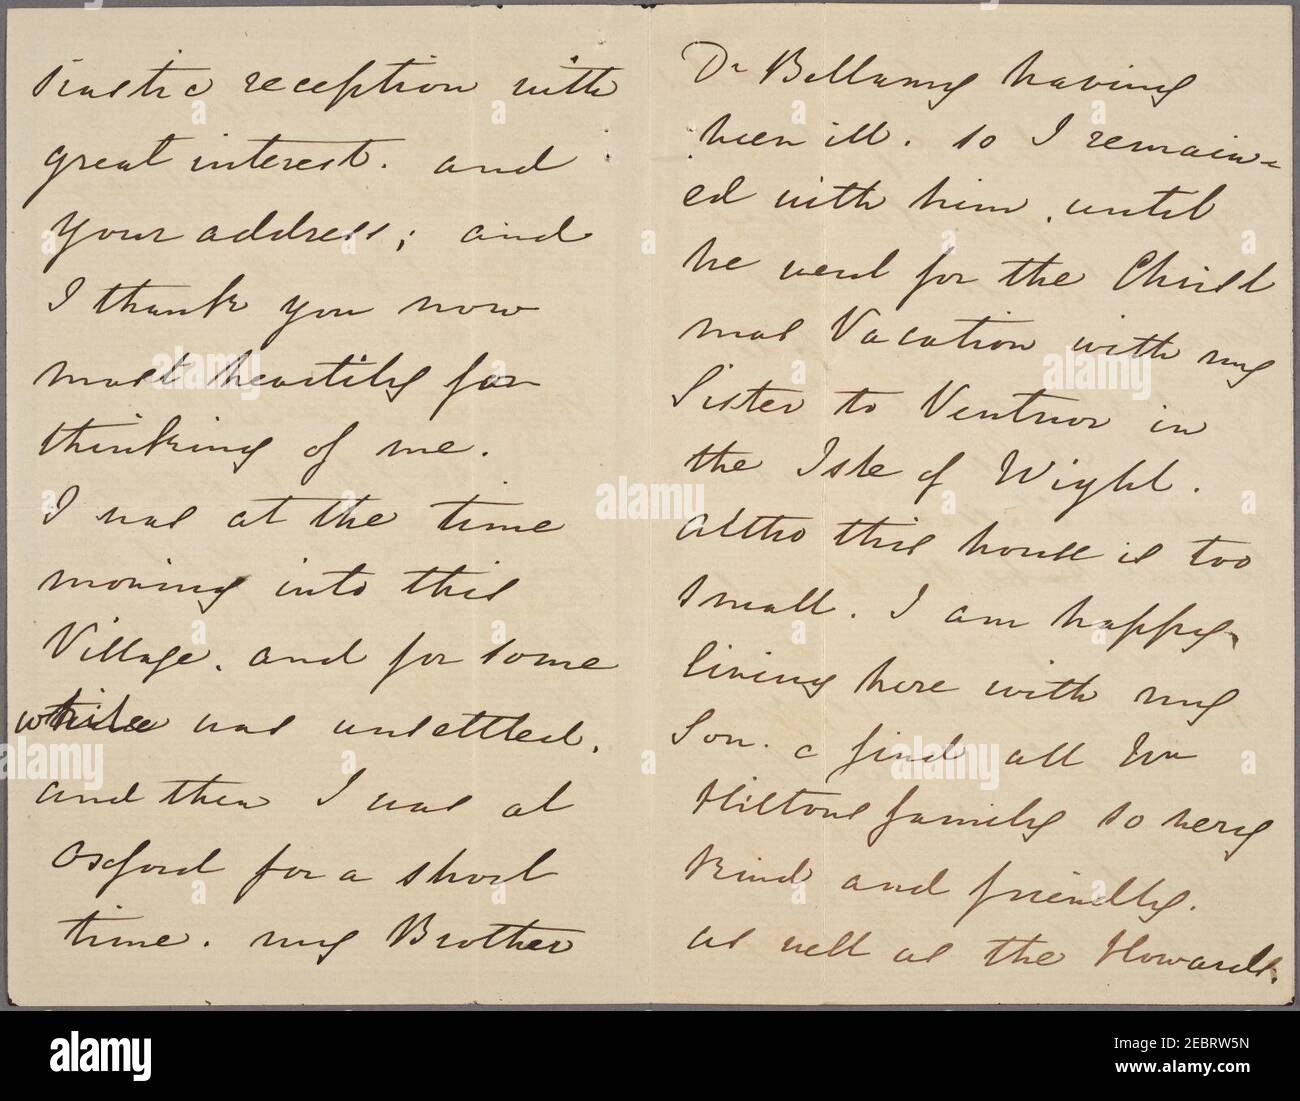 siastic reception with
great interest. and
your address; and
I thank you now
most heartily for
thinking of me.
I was at the time
moving into this
Village. and for some
while was unsettled.
and then I was at
Oxford for a short
time. my Brother
Dr Bellamy having
been ill. so I remain-
ed with him, until
he went for the Christ
mas Vacation with my
Sister to Ventnor in
the Isle of Wight.
Altho this house is too
small. I am happy
living here with my
Son. & find all Wm
Hiltons family so very
kind and friendly.
as well as the Howards.
alamy
Image ID: 2EBRW5N
www.alamy.com